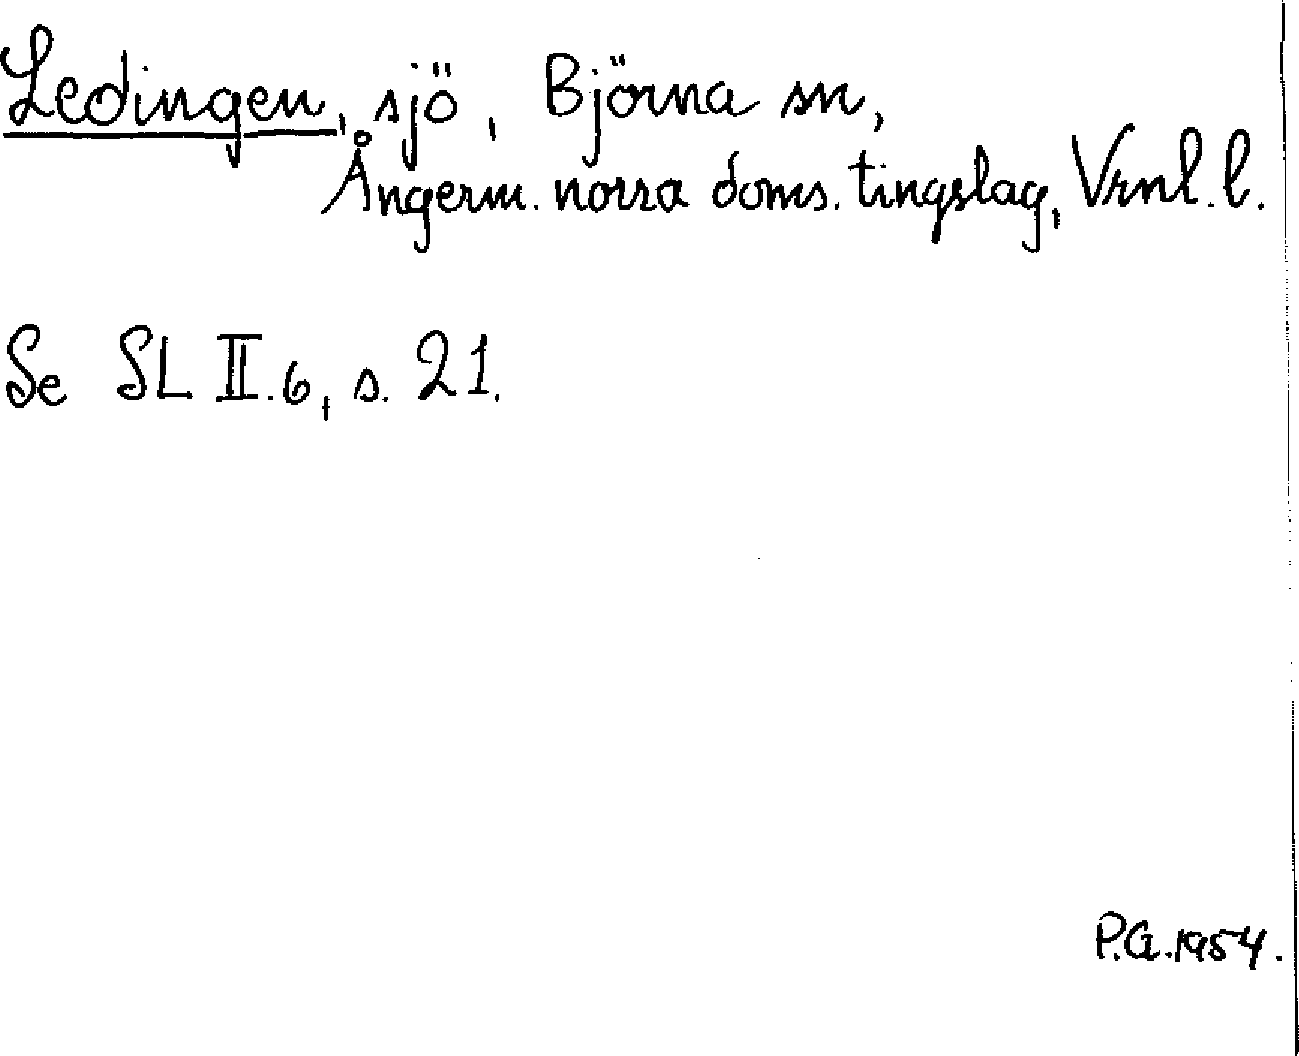 Ledingen, sjö, Björna sn,
Ångerm. norra doms. tingslag, Vrnl. l.
Se SL II.6, s. 21.
P.G. 1954.